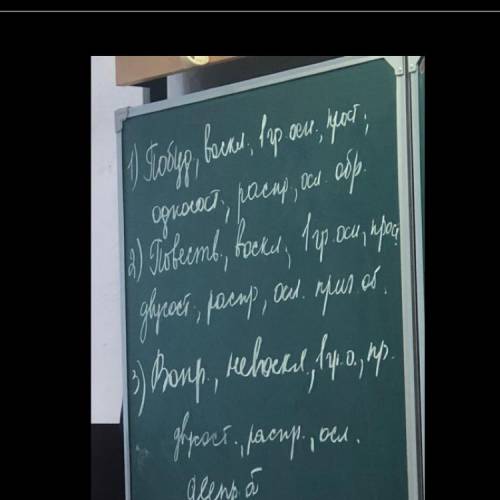 1) Побуд, воскл., 1 гр. осн., прост,
односост., распр., осл. обр.
2) Повеств., воскл., 1 гр. осн., прост,
двусост., распр, осл. прич об.
3) Вопр., невоскл, 1 гр. о., пр.
двусост., распр., осл.
деепр. о